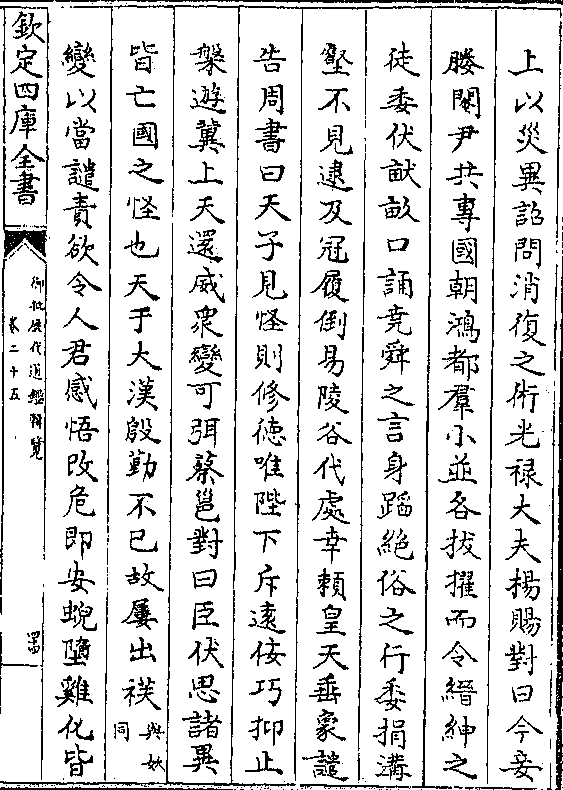 上以災異詔問消復之術光禄大夫楊賜對曰今妾
媵閹尹共專國朝鴻都羣小並各拔擢而令縉紳之
徒委伏畎畝口誦堯舜之言身蹈絶俗之行委捐溝
壑不見逮及冠履倒易陵谷代處幸賴皇天垂象譴
告周書曰天子見怪則修徳唯陛下斥遠佞巧抑止
槃遊冀上天還威衆變可弭蔡邕對曰臣伏思諸異
皆亡國之怪也天于大漢殷勤不已故屢出祅與妖同
變以當譴責欲令人君感悟改危即安蜺墮雞化皆
欽定四庫全書
御批歷代通鑑輯覽
卷二十五